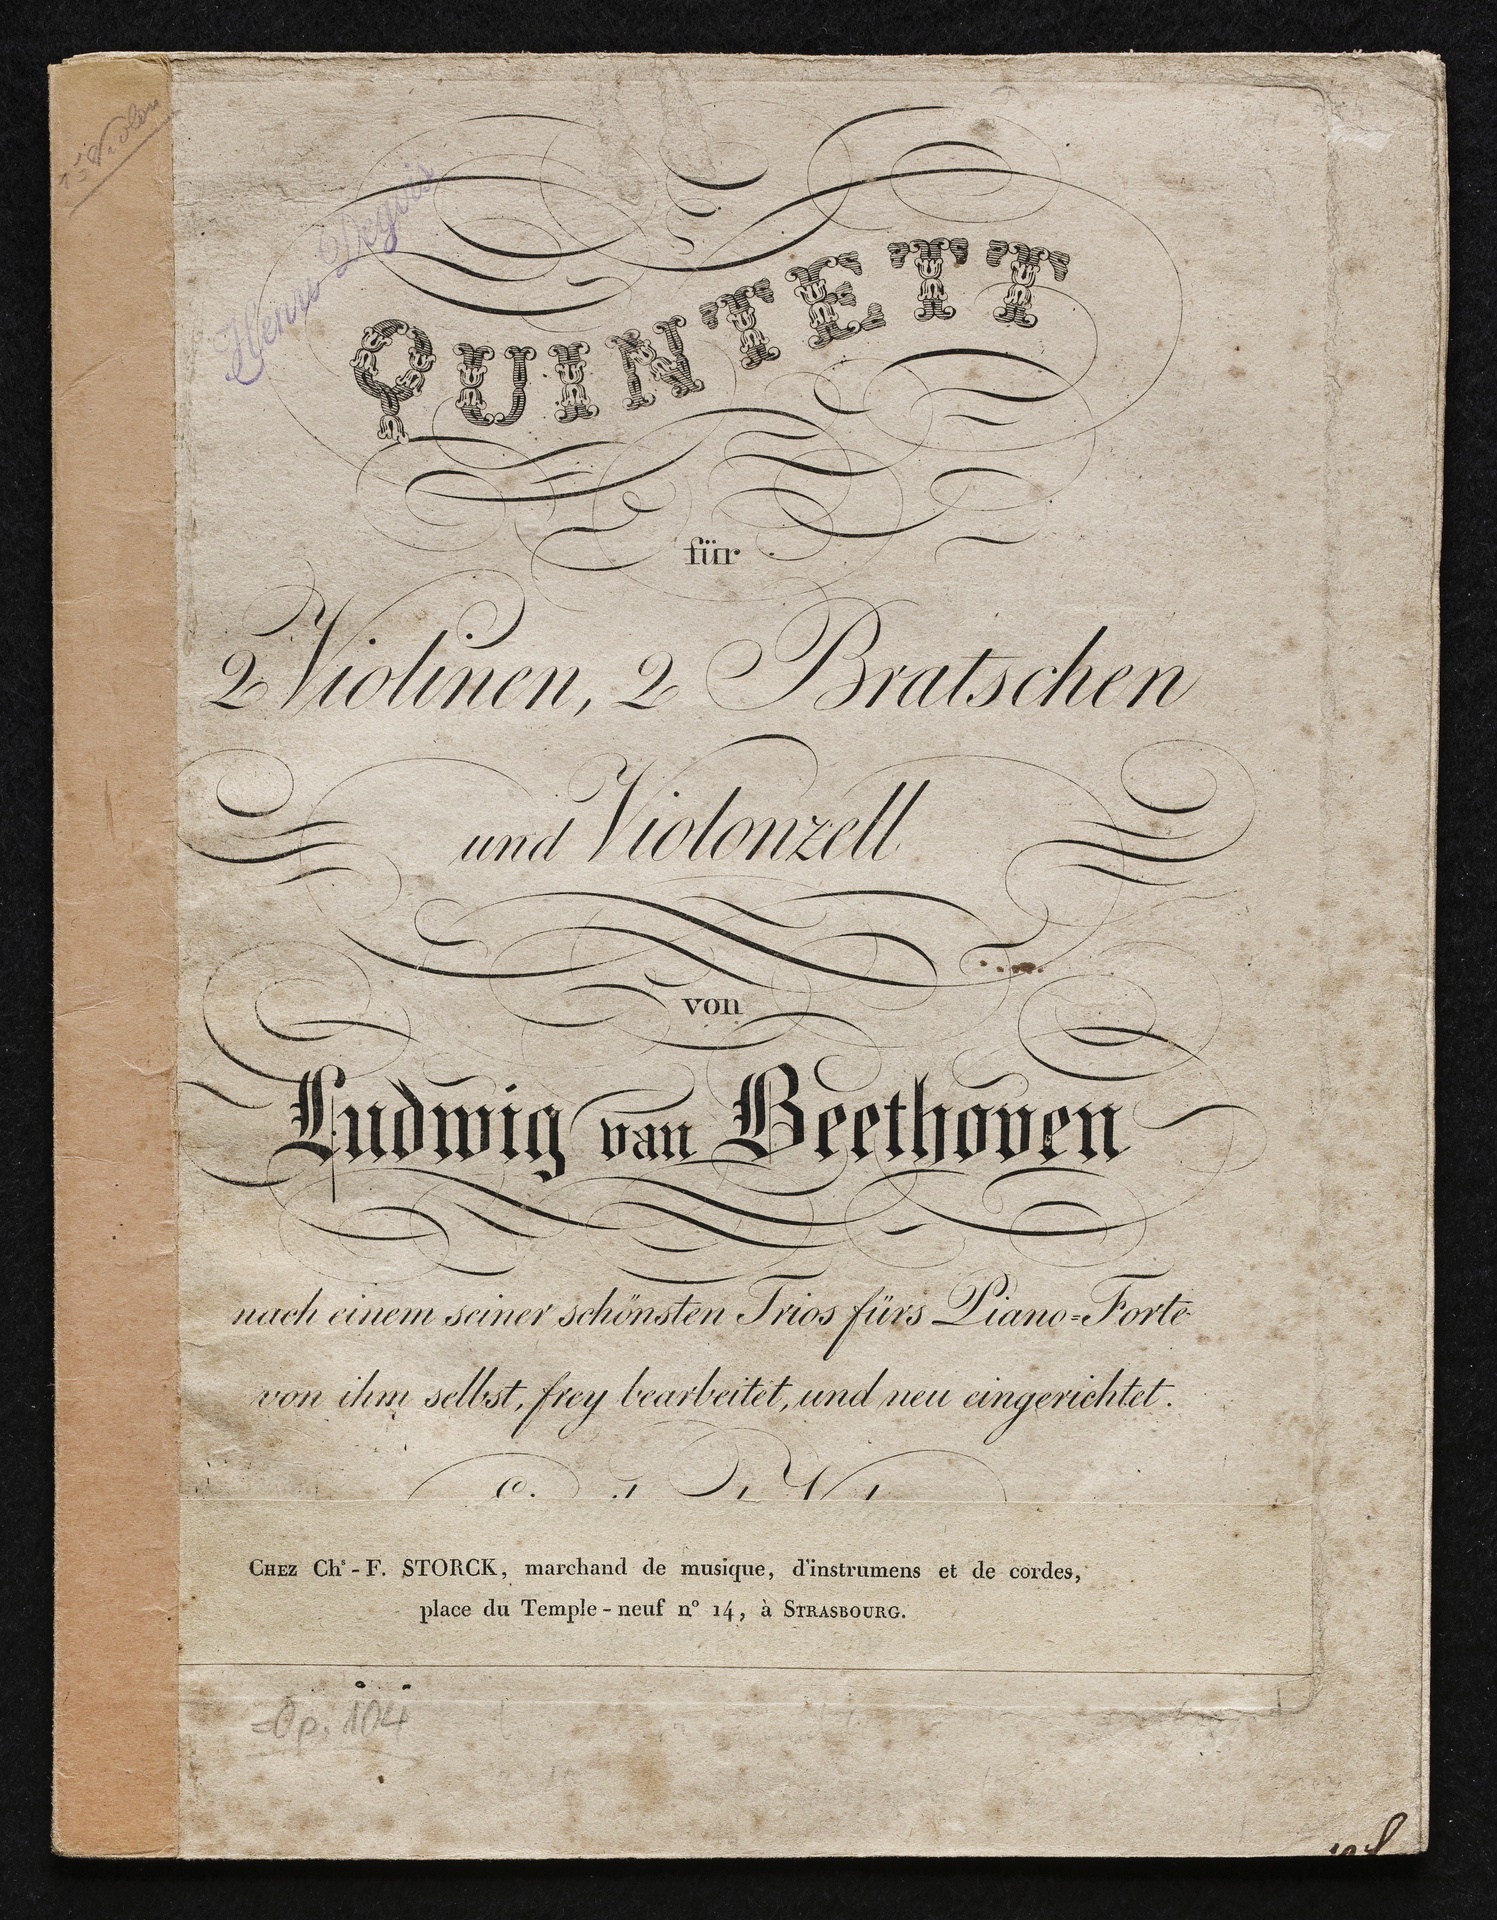 1er Violon
Henri Deguis
QUINTETT
für
2 Violinen, 2 Bratschen
und Violonzell
von
Ludwig van Beethoven
nach einem seiner schönsten Trios fürs Piano=Forte
von ihm selbst, frey bearbeitet, und neu eingerichtet.
CHEZ Chs-F. STORCK, marchand de musique, d'instrumens et de cordes,
place du Temple-neuf n° 14, à STRASBOURG.
=Op. 104